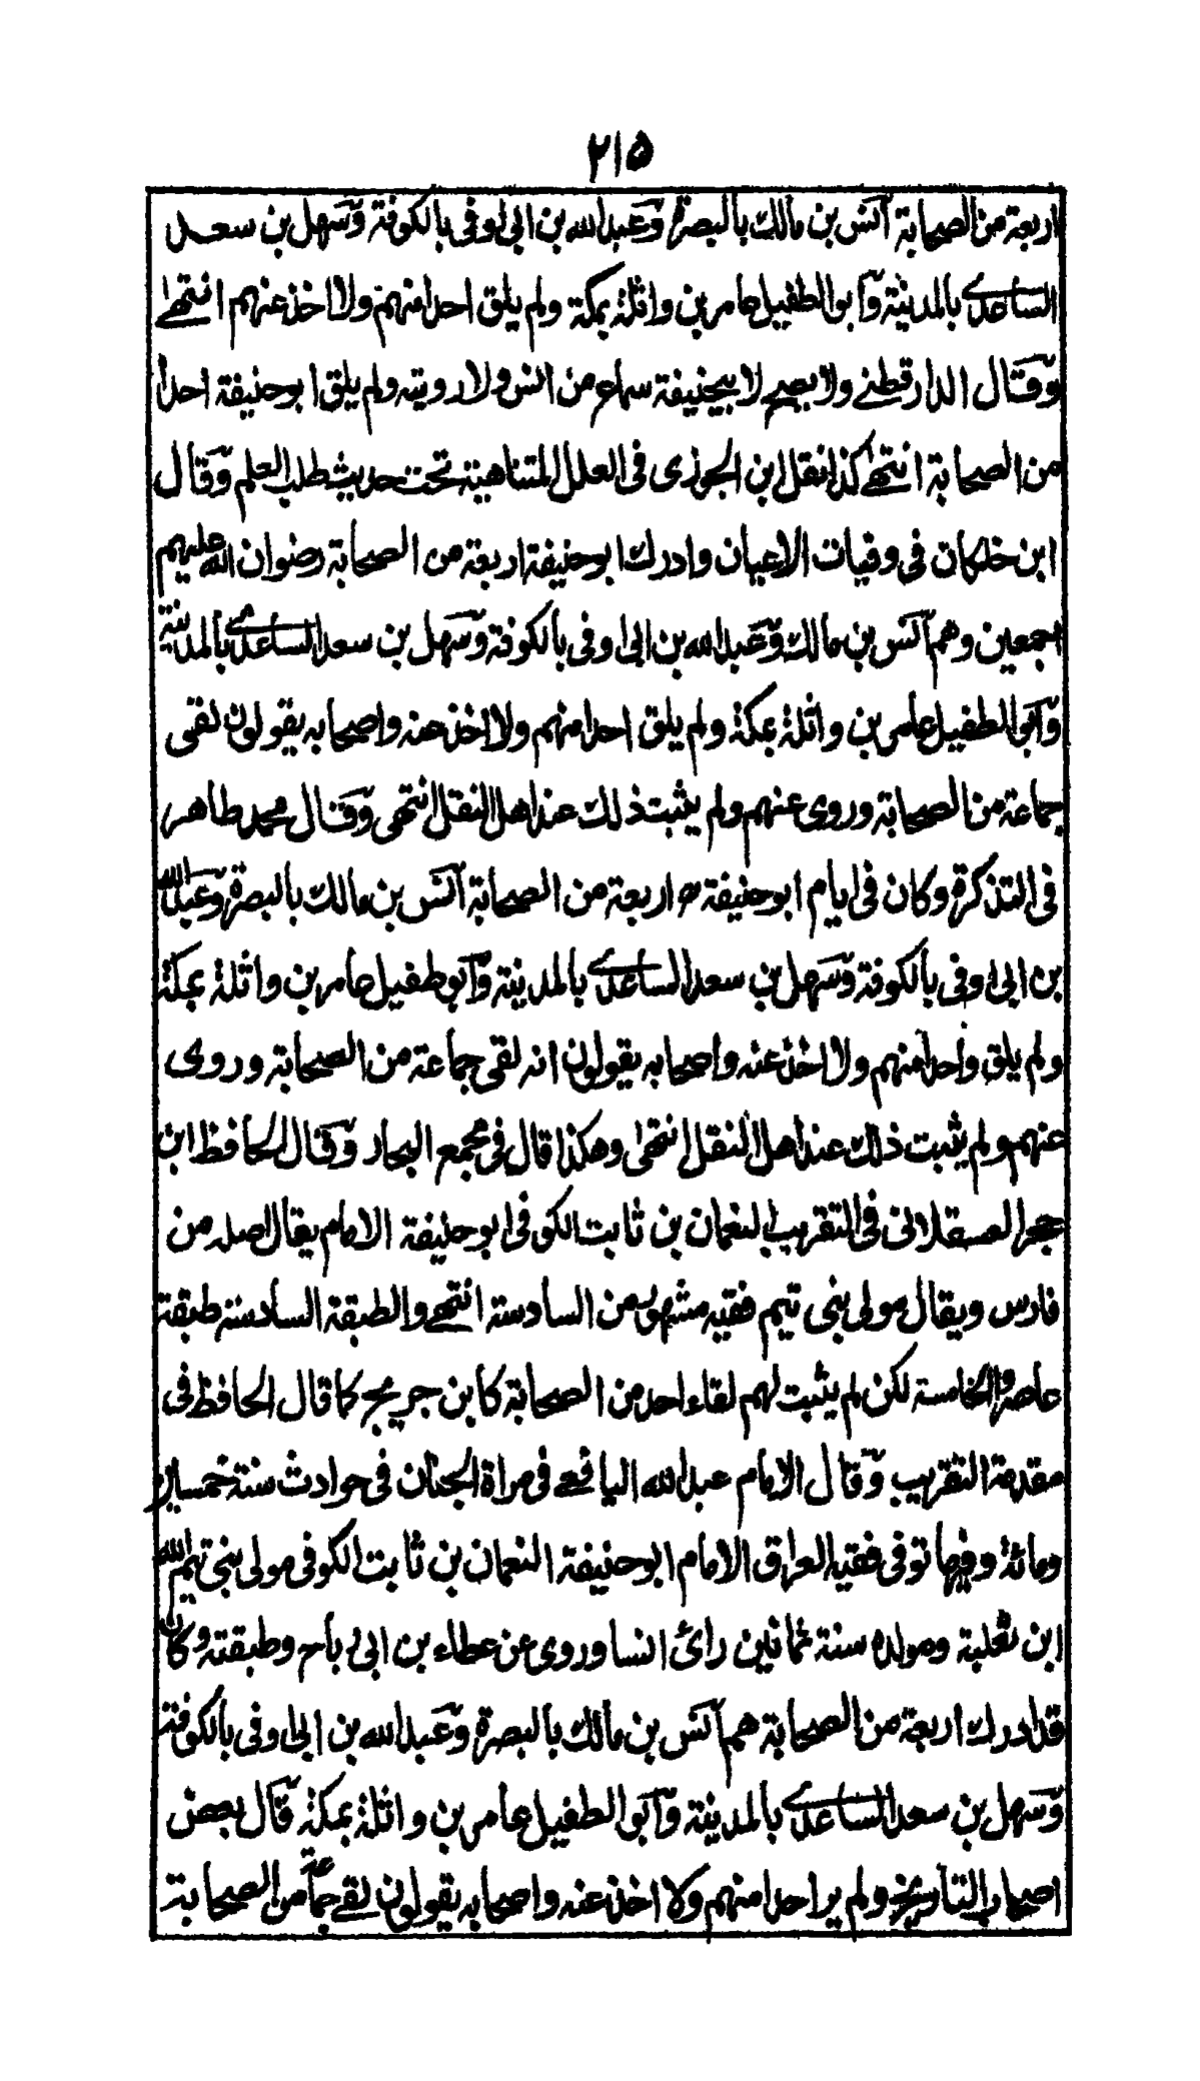 ٢١٥
اربعة من الصحابة انس بن مالك بالبصرة وعبد الله بن ابي اوفى بالكوفة وسهل بن سعد
الساعدي بالمدينة وابو الطفيل عامر بن واثلة بمكة ولم يلق احدا منهم ولا اخذ عنهم انتهى
وقال الدارقطني ولا يصح لابيحنيفة سماع من انس ولا رويته ولم يلق ابو حنيفة احدا
من الصحابة انتهى كذا نقل ابن الجوزى فى العلل المتناهية تحت حديث طلب العلم وقال
ابن خلكان فى وفيات الاعيان وادرك ابو حنيفة اربعة من الصحابة رضوان الله عليهم
اجمعين وهم انس بن مالك وعبد الله بن ابى اوفى بالكوفة وسهل بن سعد الساعدي بالمدينة
وابو الطفيل عامر بن واثلة بمكة ولم يلق احدا منهم ولا اخذ عنه واصحابه يقولون لقى
جماعة من الصحابة وروى عنهم ولم يثبت ذلك عند اهل النقل انتهى وقال محمد طاهر
فى التذكرة وكان فى ايام ابو حنيفة رح اربعة من الصحابة انس بن مالك بالبصرة وعبد الله
بن ابى اوفى بالكوفة وسهل بن سعد الساعدي بالمدينة وابو طفيل عامر بن واثلة بمكة
ولم يلق واحدا منهم ولا اخذ عنه واصحابه يقولون انه لقى جماعة من الصحابة وروى
عنهم ولم يثبت ذلك عند اهل النقل انتهى وهكذا قال فى مجمع البحار وقال الحافظ ابن
حجر العسقلانى فى التقريب النعمان بن ثابت الكوفى ابو حنيفة الامام يقال اصله من
فارس ويقال مولى بنى تيم فقيه مشهور من السادسة انتهى والطبقة السادسة طبقة
عاصروا الخامسة لكن لم يثبت لهم لقاء احد من الصحابة كابن جريج كما قال الحافظ فى
مقدمة التقريب وقال الامام عبد الله اليافعي فى مراة الجنان فى حوادث سنة خمسين
ومائة وفيها توفى فقيه العراق الامام ابو حنيفة النعمان بن ثابت الكوفى مولى بنى تيم الله
ابن ثعلبة ومولده سنة ثمانين رائ انسا وروى عن عطاء بن ابى رباح وطبقته وكان
قد ادرك اربعة من الصحابة هم انس بن مالك بالبصرة وعبد الله بن ابى اوفى بالكوفة
وسهل بن سعد الساعدي بالمدينة وابو الطفيل عامر بن واثلة بمكة قال بعض
اصحاب التاريخ ولم ير احدا منهم ولا اخذ عنه واصحابه يقولون لقى جماعة من الصحابة